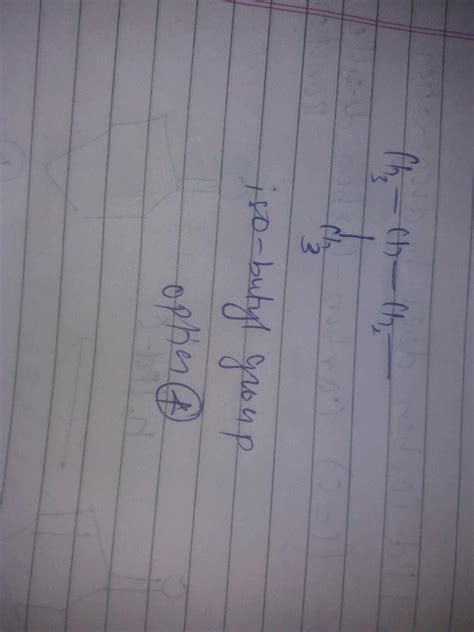 Ch3 — Ch — Ch2 —
|
Ch3
iso-butyl group
option ④